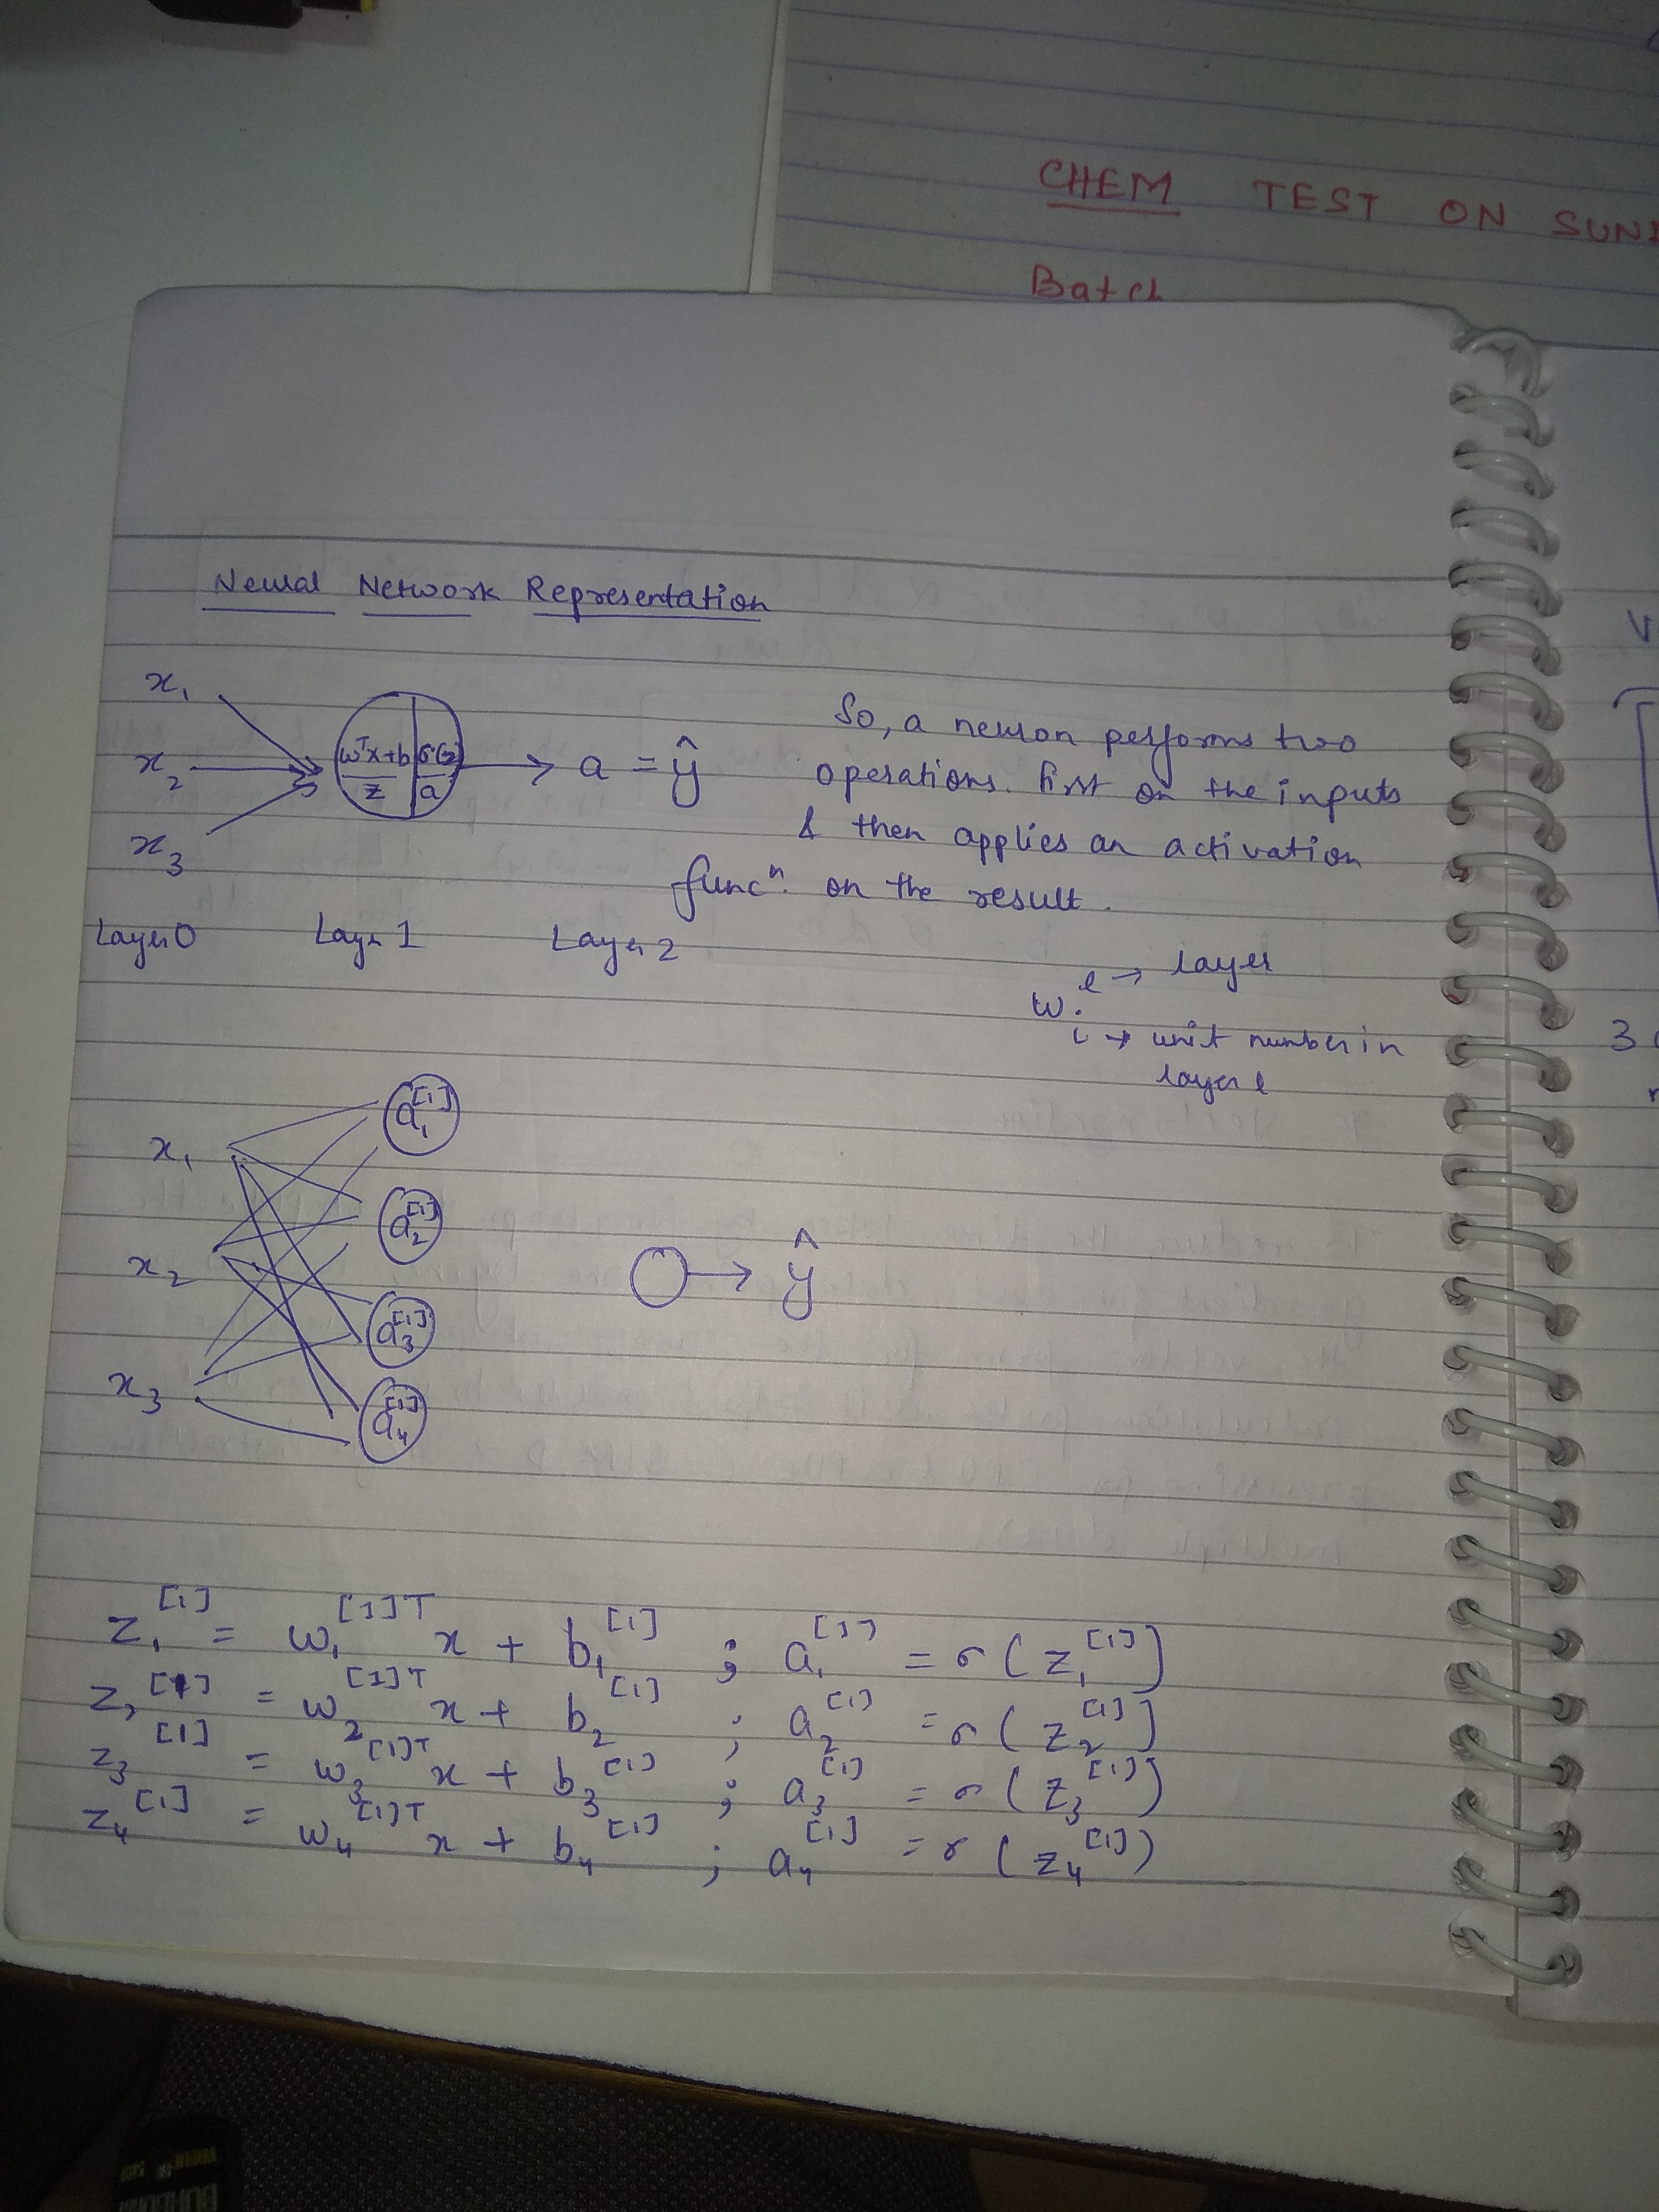 CHEM TEST ON SUN
Batch
Neural Network Representation
x₁
x₂
x₃
wᵀx+b σ(z)
z a
→ a = ŷ
So, a neuron performs two
operations. first on the inputs
& then applies an activation
funcⁿ. on the result.
Layer 0 Layer 1 Layer 2
w_i^l
l → layer
i → unit number in
layer l
x₁
x₂
x₃
a₁^[1]
a₂^[1]
a₃^[1]
a₄^[1]
→ ŷ
z₁^[1] = w₁^[1]T x + b₁^[1] ; a₁^[1] = σ(z₁^[1])
z₂^[1] = w₂^[1]T x + b₂^[1] ; a₂^[1] = σ(z₂^[1])
z₃^[1] = w₃^[1]T x + b₃^[1] ; a₃^[1] = σ(z₃^[1])
z₄^[1] = w₄^[1]T x + b₄^[1] ; a₄^[1] = σ(z₄^[1])
3